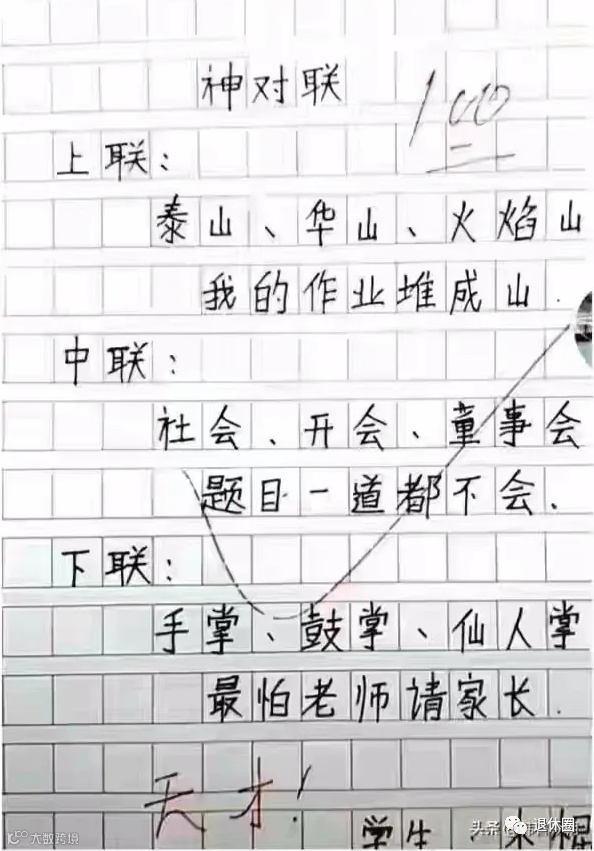 神对联
100
上联：
泰山、华山、火焰山
我的作业堆成山.
中联：
社会、开会、童事会
题目一道都不会.
下联：
手掌、鼓掌、仙人掌
最怕老师请家长.
天才!
学生
头条
退休圈
大数跨境